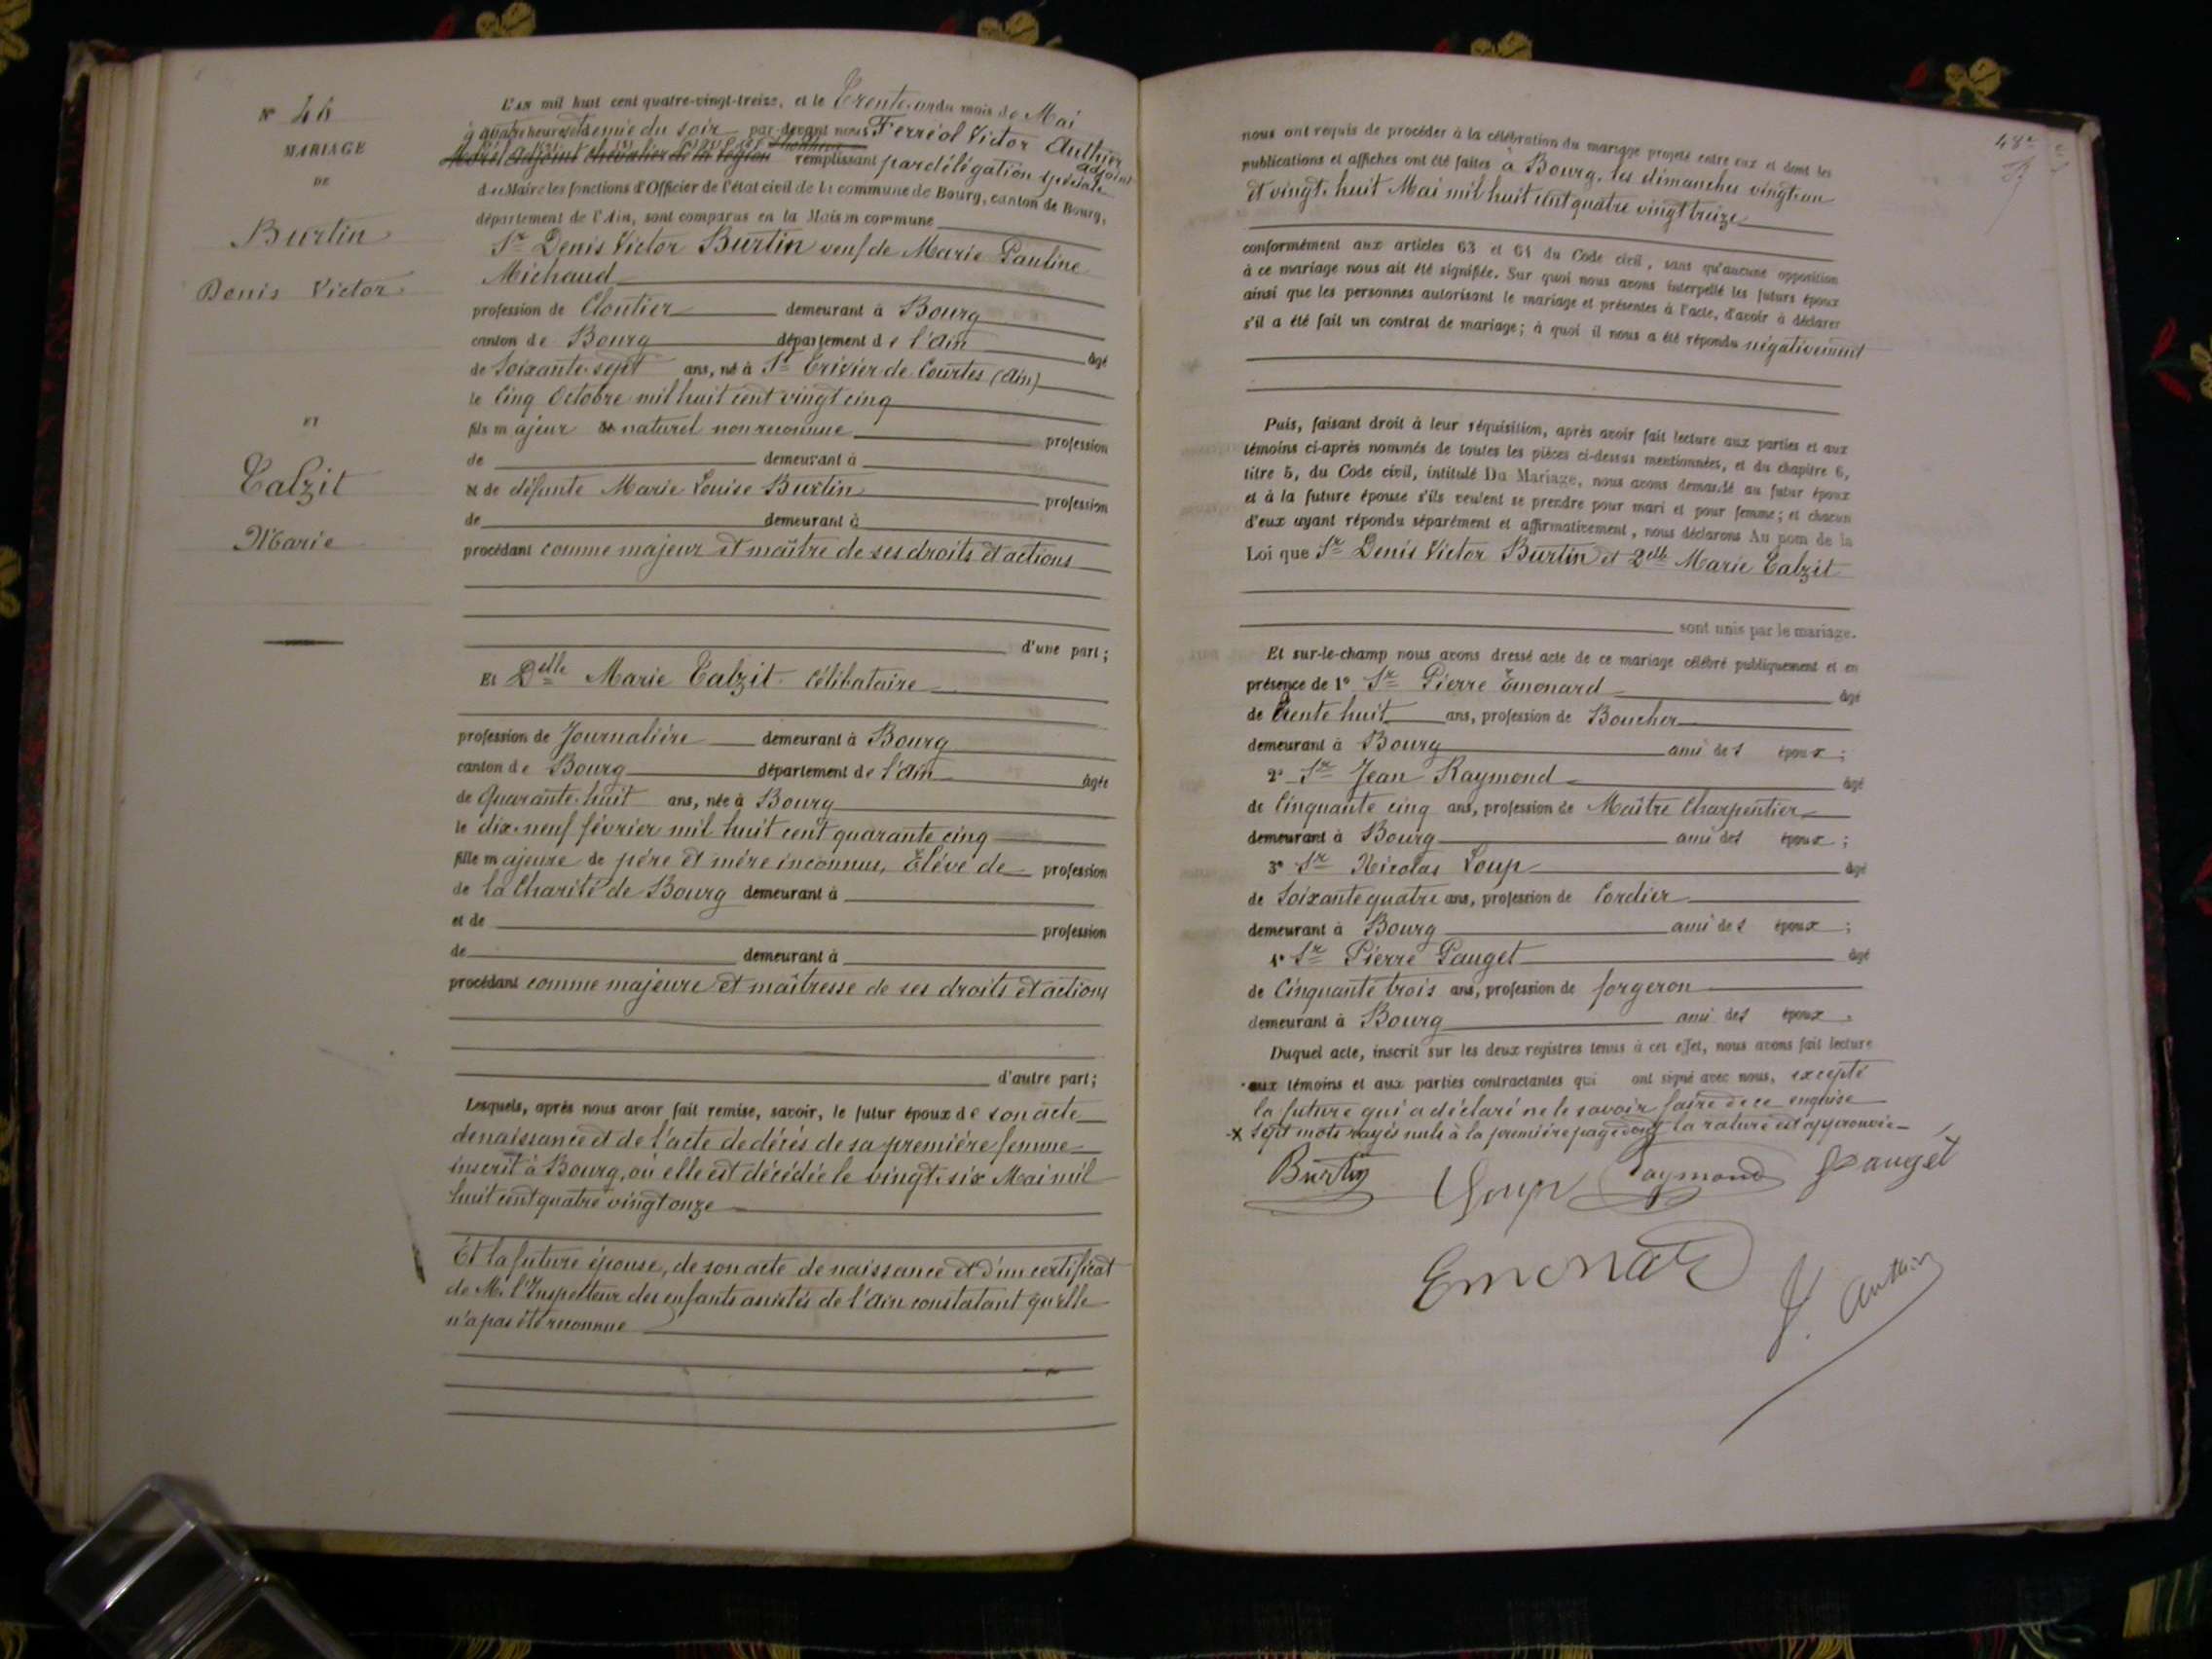 N° 46
MARIAGE
DE
Burtin
Denis Victor
ET
Talzit
Marie
L'AN mil huit cent quatre-vingt-treize, et le Trente-un du mois de Mai
à quatre heures et demie du soir par-devant nous Ferréol Victor Authier
adjoint chevalier de la légion d'honneur remplissant par délégation spéciale adjoint
du Maire les fonctions d'Officier de l'état civil de la commune de Bourg, canton de Bourg,
département de l'Ain, sont comparus en la Maison commune
Sr Denis Victor Burtin veuf de Marie Pauline
Michaud
profession de Cloutier demeurant à Bourg
canton de Bourg département de l'Ain âgé
de Soixante-sept ans, né à St Trivier de Courtes (Ain)
le Cinq Octobre mil huit cent vingt cinq
fils majeur de naturel non reconnue profession
de demeurant à
et de défunte Marie Louise Burtin profession
de demeurant à
procédant comme majeur et maître de ses droits et actions
d'une part;
Et Delle Marie Talzit Célibataire
profession de Journalière demeurant à Bourg
canton de Bourg département de l'Ain âgée
de Quarante-huit ans, née à Bourg
le dix-neuf février mil huit cent quarante cinq
fille majeure de père et mère inconnus, Elève de profession
de la Charité de Bourg demeurant à
et de profession
de demeurant à
procédant comme majeure et maîtresse de ses droits et actions
d'autre part;
Lesquels, après nous avoir fait remise, savoir, le futur époux de son acte
de naissance et de l'acte de décés de sa première femme
inscrit à Bourg, où elle est décédée le vingt-six Mai mil
huit cent quatre vingt onze
Et la future épouse, de son acte de naissance et d'un certificat
de Mr l'Inspecteur des enfants assistés de l'Ain constatant qu'elle
n'a pas été reconnue
48e
nous ont requis de procéder à la célébration du mariage projeté entre eux et dont les
publications et affiches ont été faites à Bourg, les dimanches vingt un
et vingt-huit Mai mil huit cent quatre vingt treize
conformément aux articles 63 et 64 du Code civil, sans qu'aucune opposition
à ce mariage nous ait été signifiée. Sur quoi nous avons interpellé les futurs époux
ainsi que les personnes autorisant le mariage et présentes à l'acte, d'avoir à déclarer
s'il a été fait un contrat de mariage; à quoi il nous a été répondu négativement
Puis, faisant droit à leur réquisition, après avoir fait lecture aux parties et aux
témoins ci-après nommés de toutes les pièces ci-dessus mentionnées, et du chapitre 6,
titre 5, du Code civil, intitulé Du Mariage, nous avons demandé au futur époux
et à la future épouse s'ils veulent se prendre pour mari et pour femme; et chacun
d'eux ayant répondu séparément et affirmativement, nous déclarons Au nom de la
Loi que Sr Denis Victor Burtin et Delle Marie Talzit
sont unis par le mariage.
Et sur-le-champ nous avons dressé acte de ce mariage célébré publiquement et en
présence de 1° Sr Pierre Emonard âgé
de trente huit ans, profession de Boucher
demeurant à Bourg ami des époux;
2° Sr Jean Raymond âgé
de Cinquante cinq ans, profession de Maître Charpentier
demeurant à Bourg ami des époux;
3° Sr Nicolas Loup âgé
de Soixante quatre ans, profession de Cordier
demeurant à Bourg ami des époux;
4° Sr Pierre Pauget âgé
de Cinquante trois ans, profession de forgeron
demeurant à Bourg ami des époux.
Duquel acte, inscrit sur les deux registres tenus à cet effet, nous avons fait lecture
aux témoins et aux parties contractantes qui ont signé avec nous, excepté
la future qui a déclaré ne le savoir faire de ce enquise
x Sept mots rayés nuls à la première page dont la rature est approuvée
Burtin Loup Raymond Pauget
Emonard
V. Authier